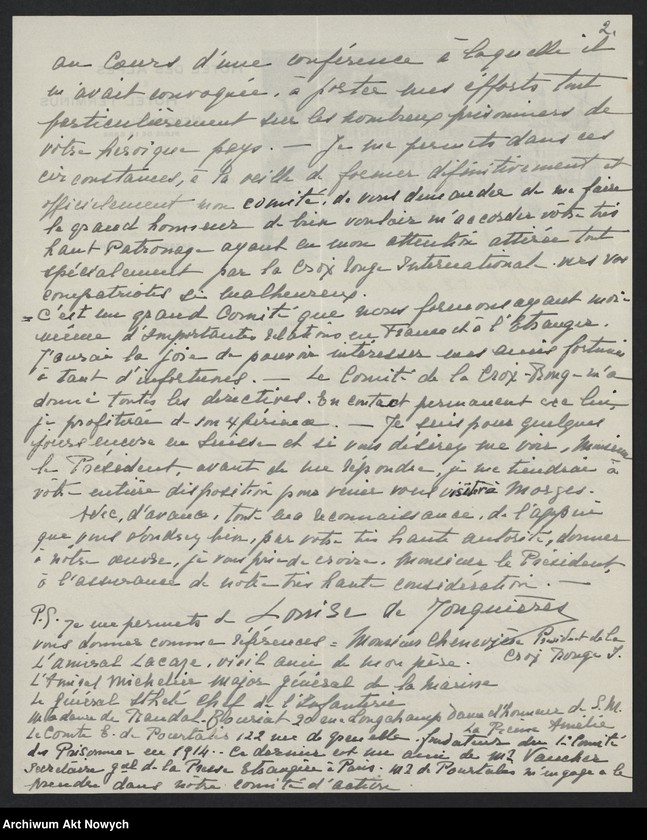 2.
au Cours d'une conférence à laquelle il
m'avait convoquée, à porter mes efforts tout
particulièrement sur les nombreux prisonniers de
votre héroïque pays. — Je me permets dans ces
circonstances, à la veille de former définitivement et
officiellement mon comité, de vous demander de me faire
le grand honneur de bien vouloir m'accorder votre très
haut Patronage ayant eu mon attention attirée tout
spécialement par la Croix Rouge International vers vos
compatriotes si malheureux.
= C'est un grand Comité que nous formons ayant moi-
même d'importantes relations en France et à l'Etranger.
J'aurai la joie de pouvoir intéresser mes amis fortunés
à tant d'infortunes. — Le Comité de la Croix-Rouge m'a
donné toutes les directives. En contact permanent avec lui,
je profiterai de son expérience. — Je suis pour quelques
jours encore en Suisse et si vous désirez me voir, Monsieur
le Président, avant de me répondre, je me tiendrai à
votre entière disposition pour venir vous visiter à Morges.
Avec, d'avance, toute ma reconnaissance, de l'appui
que vous voudrez bien, par votre très haute autorité, donner
à notre œuvre, je vous prie de croire, Monsieur le Président,
à l'assurance de notre très haute considération. —
Louise de Jonquières
P.S. Je me permets de
vous donner comme références = Monsieur Chenevière Président de la
Croix Rouge I.
L'amiral Lacaze, vieil ami de mon père.
L'Amiral Michelier major général de la marine
Le général Chef de l'Infanterie
Madame de 20 rue Longchamp Dame d'honneur de S.M.
La Reine Amélie
Le Comte E. de Pourtalès 122 rue de grenelle. fondateur du 1er Comité
des Prisonniers en 1914.. Ce dernier est un ami de Mr Vaucher
Secrétaire gal de la Presse Etrangère à Paris. Mr de Pourtalès m'engage à le
prendre dans notre comité d'action.
Archiwum Akt Nowych